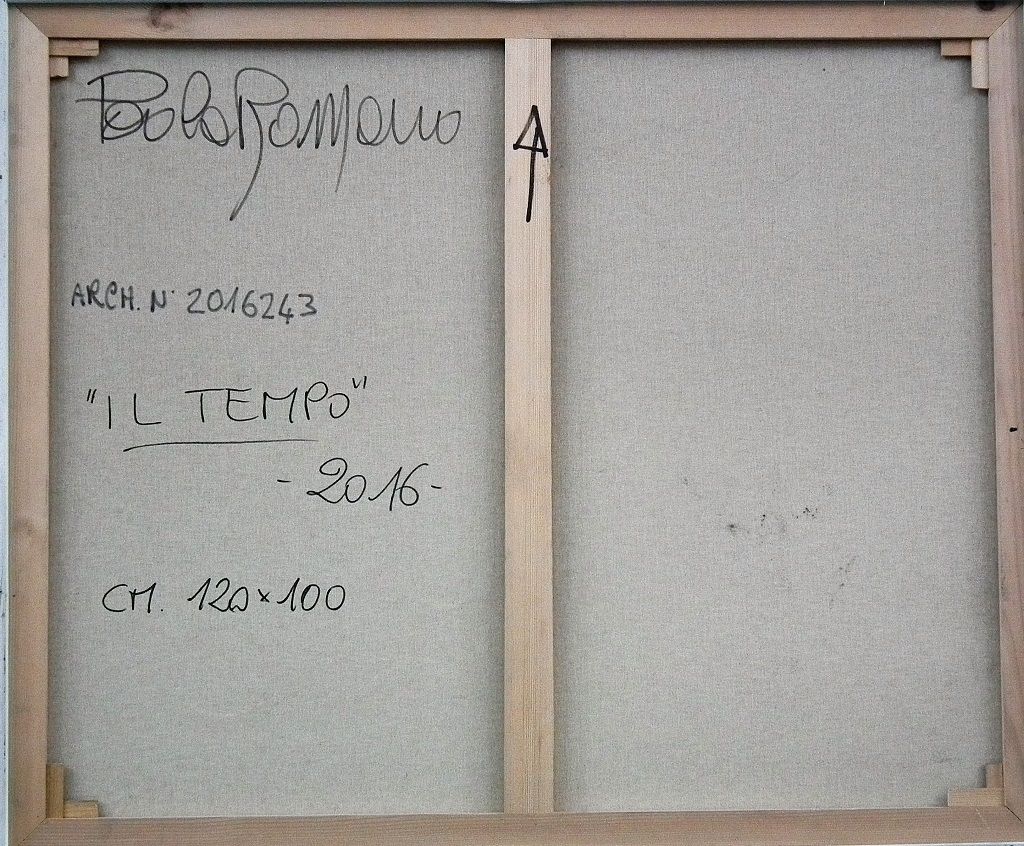 Paola Romano
ARCH. N. 2016243
"IL TEMPO"
- 2016 -
CM. 120 × 100